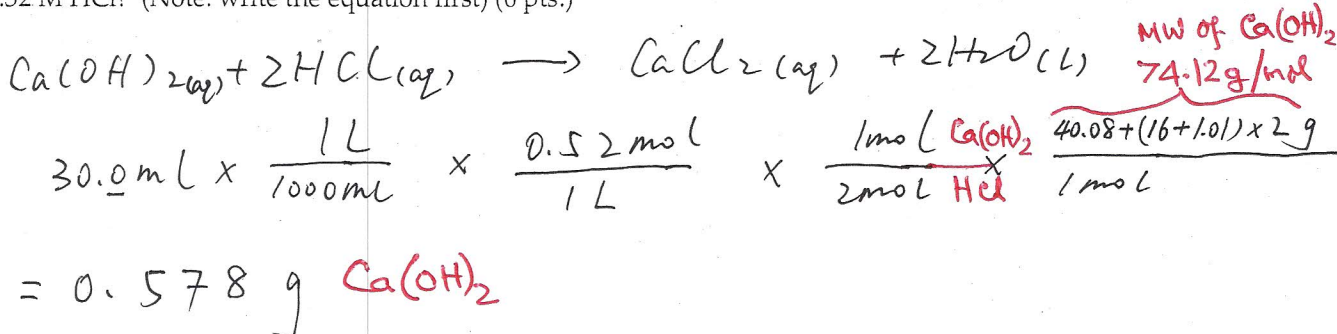 .52 M HCl? (Note: write the equation first) (6 pts.)
Ca(OH)2(aq) + 2HCl(aq) ⟶ CaCl2(aq) + 2H2O(l)
MW of Ca(OH)2
74.12 g/mol
30.0 ml x 1L/1000ml x 0.52 mol/1L x 1mol Ca(OH)2/2mol HCl x 40.08+(16+1.01)x2 g/1mol
= 0.578 g Ca(OH)2